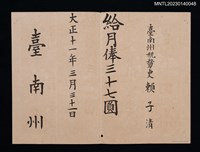 MNTL20230140048
臺南州稅務吏 賴子清
給月俸三十七圓
大正十一年三月三十一日
臺南州